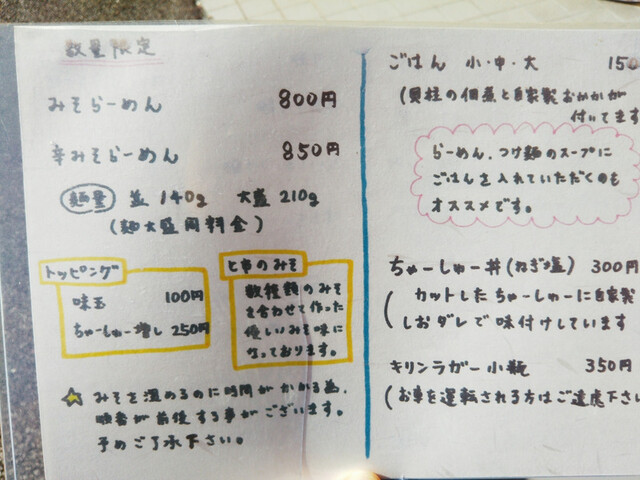 数量限定
みそらーめん 800円
辛みそらーめん 850円
麺量 並 140g 大盛 210g
(麺大盛同料金)
トッピング
味玉 100円
ちゃーしゅー増し 250円
と市のみそ
数種類のみそ
を合わせて作った
優しいみそ味に
なっております。
☆ みそを温めるのに時間がかかる為、
順番が前後する事がございます。
予めご了承下さい。
ごはん 小・中・大 150
(貝柱の佃煮と自家製おかかが
付いてます
らーめん、つけ麺のスープに
ごはんを入れていただくのも
オススメです。
ちゃーしゅー丼(ねぎ塩) 300円
(カットしたちゃーしゅーに自家製
しおダレで味付けしています
キリンラガー小瓶 350円
(お車を運転される方はご遠慮下さい